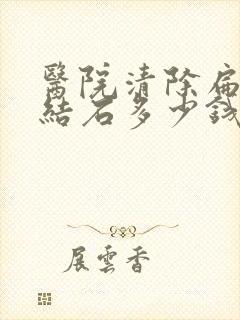 醫院清除扁
結石多少錢
展雲香